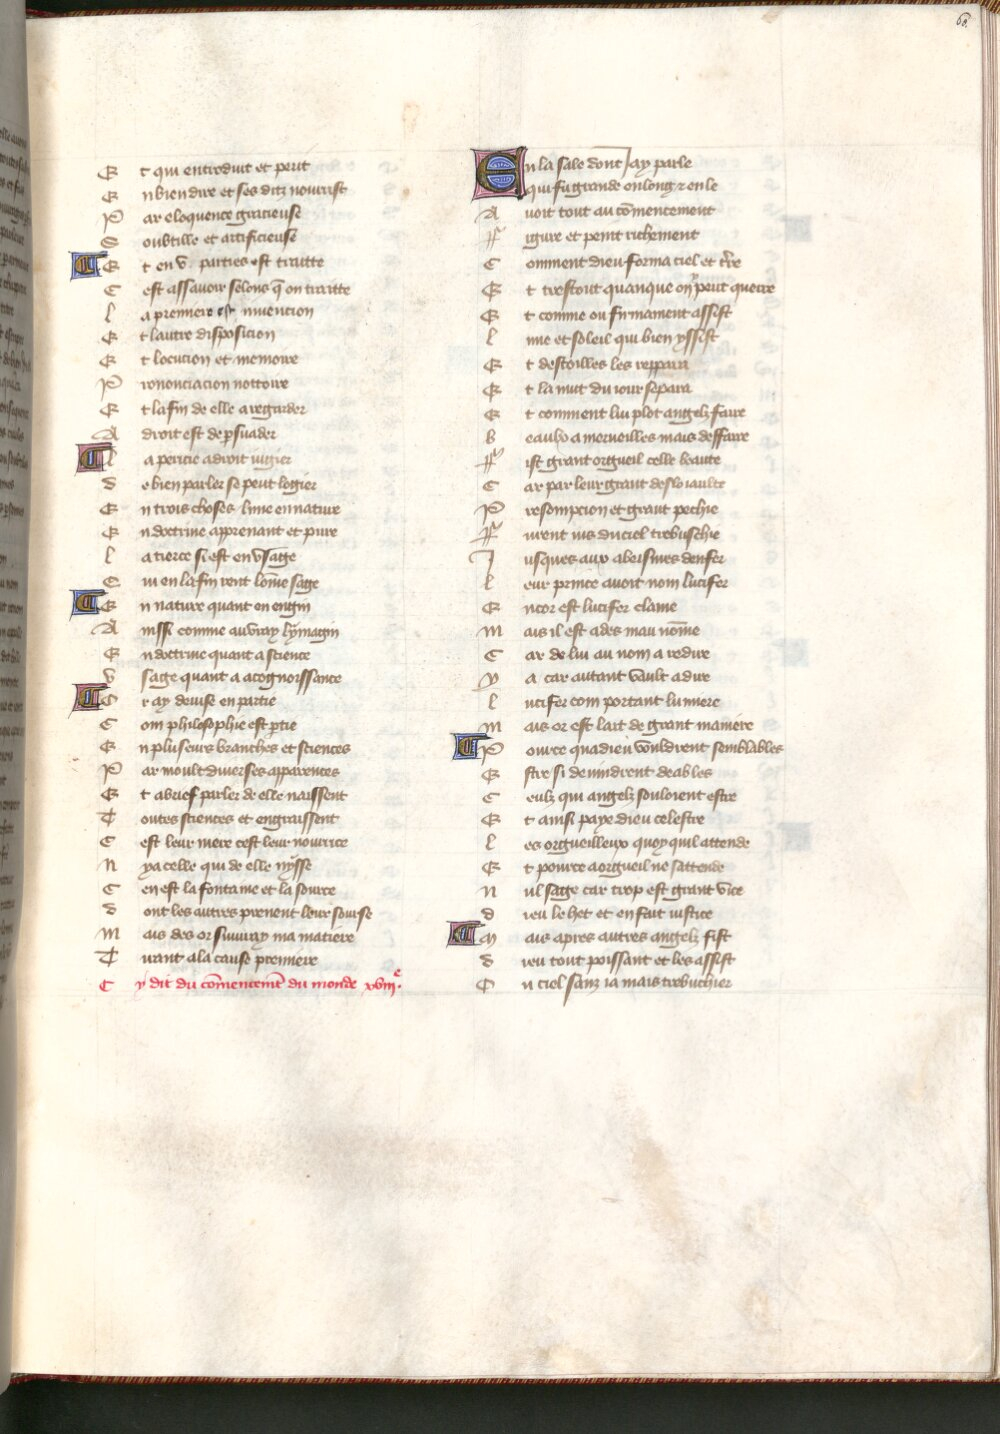 60
Et qui entroduit et peut
En bien dire et ses ditz nourrist
Par eloquence gracieuse
Soubtille et artificieuse
Et en .v. parties est traitte
C est assavoir selonc q̄ on traitte
La premiere est invencion
Et lautre disposicion
Et locucion et memoire
Prononciacion nottoire
Et la fin de elle a regarder
A droit est de ꝑsuader
La pericie a droit iugier
De bien parler se peut logier
En trois choses lune en nature
En doctrine apprenant et pure
La tierce si est en usage
Cui en la fin rent lom̄e sage
En nature quant en engin
Ainssi comme au vray lymagin
En doctrine quant a science
Usage quant a acognoissance
Or ay devise en partie
Com philosophie est ꝑtie
En pluseurs branches et sciences
Par moult diverses apparences
Et a brief parler de elle naissent
Toutes sciences et engraissent
Cest leur mere cest leur nourrice
N ya celle qui de elle nysse
Cen est la fontaine et la source
Dont les autres prenent leur sourse
Mais des or suivray ma matiere
Tirant a la cause premiere
Cy dit du cōmencemēt du monde xviij.e
En la sale dont Jay parle
qui fu grande en long ⁊ en le
Avoit tout au cōmencement
Figure et peint richement
Comment dieu forma ciel et t̄re
Et trestout quanque on y peut querre
Et comme ou firmament assist
Lune et soleil qui bien yssist
Et destoilles les reppara
Et la nuit du iour separa
Et comment lui plot angelz faire
Beaulx a merveilles mais deffaire
Fist grant orgueil celle beaute
Car par leur grant desloiaulte
Presompcion et grant pechie
Furent ius du ciel trebuschie
Jusques aux abeismes denfer
Leur prince avoit nom lucifer
Encor est lucifer clame
Mais il est ades mau nōme
Car de lui au nom a redire
Y a car autant vault a dire
Lucifer com portant lumiere
Mais or est lait de grant maniere
Pource qua dieu vouldrent semblables
Estre si devindrent deables
Ceulz qui angelz souloient estre
Et ainsi paye dieu celestre
Les orgueilleux quoy quil attende
Et pource a orgueil ne sattende
Nul sage car trop est grant vice
Dieu le het et en fait iustice
Mais apres autres angelz fist
Dieu tout poissant et les assist
Ou ciel sanz ia mais trebuchier